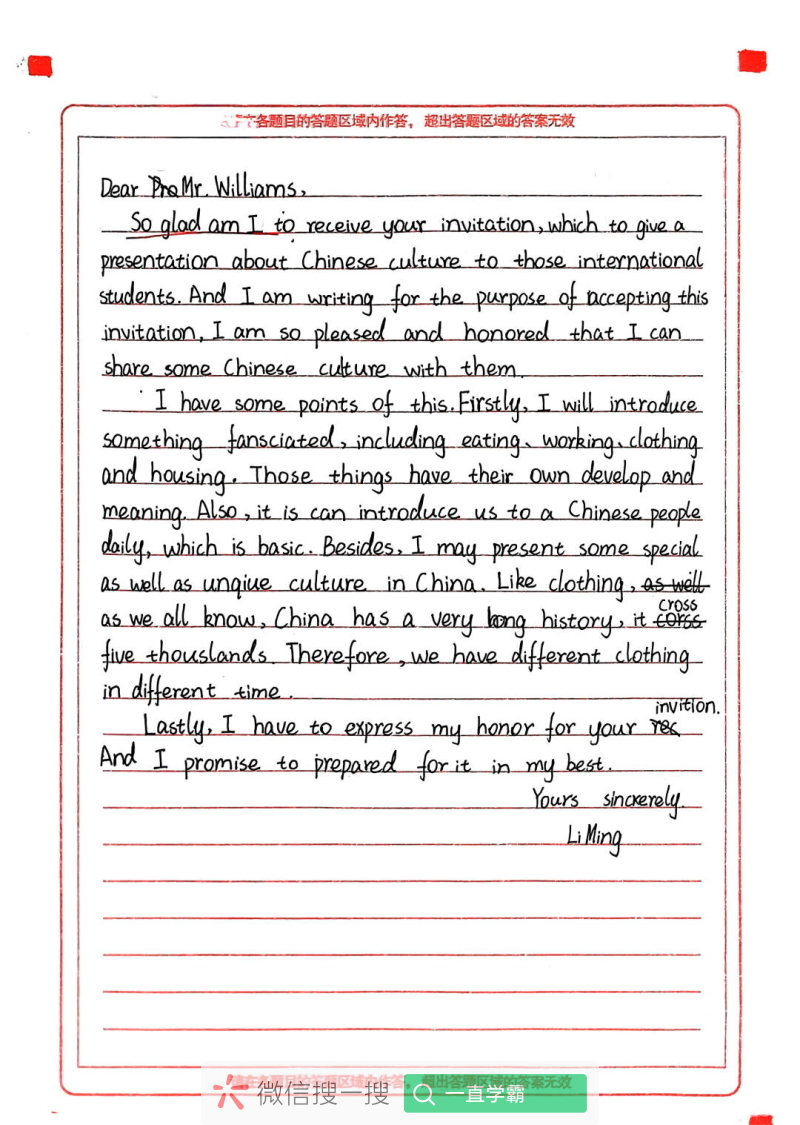 各题目的答题区域内作答，超出答题区域的答案无效
Dear Mr. Williams,
So glad am I to receive your invitation, which to give a
presentation about Chinese culture to those international
students. And I am writing for the purpose of accepting this
invitation, I am so pleased and honored that I can
share some Chinese culture with them.
I have some points of this. Firstly, I will introduce
something fansciated, including eating、working、clothing
and housing. Those things have their own develop and
meaning. Also, it is can introduce us to a Chinese people
daily, which is basic. Besides, I may present some special
as well as unqiue culture in China. Like clothing, as well
as we all know, China has a very long history, it corss cross
five thouslands. Therefore, we have different clothing
in different time.
Lastly, I have to express my honor for your rec invition.
And I promise to prepared for it in my best.
Yours sinckerely.
Li Ming
请在各题目的答题区域内作答，超出答题区域的答案无效
微信搜一搜 一直学霸